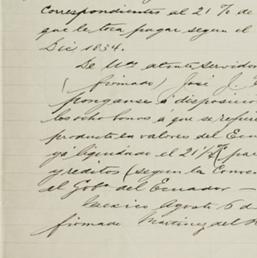 correspondientes al 21% de
que le toca pagar segun el
Dic 1834.
De Uds atento servidor
(firmado) José J.
ponganse á disposicio
los ocho bonos a que se refie
producto en valores del Ecu
ya liquidado el 21½% pa
y reditos (segun la Conve
el Gobo del Ecuador —
Mexico Agosto 6 d
firmado Martinez del R